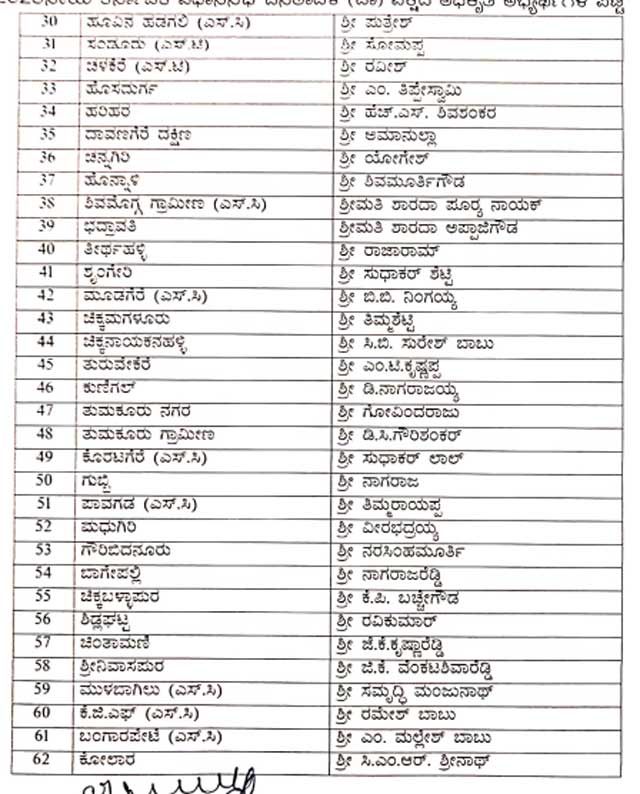 ಕರ್ನಾಟಕ ವಿಧಾನಸಭೆ ಜನತಾದಳ (ಜಾ) ಪಕ್ಷದ ಅಧಿಕೃತ ಅಭ್ಯರ್ಥಿಗಳ ಪಟ್ಟಿ
30 ಹೂವಿನ ಹಡಗಲಿ (ಎಸ್.ಸಿ) ಶ್ರೀ ಪುತ್ರೇಶ್
31 ಸಂಡೂರು (ಎಸ್.ಟಿ) ಶ್ರೀ ಸೋಮಪ್ಪ
32 ಚಳಕೆರೆ (ಎಸ್.ಟಿ) ಶ್ರೀ ರವೀಶ್
33 ಹೊಸದುರ್ಗ ಶ್ರೀ ಎಂ. ತಿಪ್ಪೇಸ್ವಾಮಿ
34 ಹರಿಹರ ಶ್ರೀ ಹೆಚ್.ಎಸ್. ಶಿವಶಂಕರ
35 ದಾವಣಗೆರೆ ದಕ್ಷಿಣ ಶ್ರೀ ಅಮಾನುಲ್ಲಾ
36 ಚನ್ನಗಿರಿ ಶ್ರೀ ಯೋಗೇಶ್
37 ಹೊನ್ನಾಳಿ ಶ್ರೀ ಶಿವಮೂರ್ತಿಗೌಡ
38 ಶಿವಮೊಗ್ಗ ಗ್ರಾಮೀಣ (ಎಸ್.ಸಿ) ಶ್ರೀಮತಿ ಶಾರದಾ ಪೂರ‍್ಯ ನಾಯಕ್
39 ಭದ್ರಾವತಿ ಶ್ರೀಮತಿ ಶಾರದಾ ಅಪ್ಪಾಜಿಗೌಡ
40 ತೀರ್ಥಹಳ್ಳಿ ಶ್ರೀ ರಾಜಾರಾಮ್
41 ಶೃಂಗೇರಿ ಶ್ರೀ ಸುಧಾಕರ್ ಶೆಟ್ಟಿ
42 ಮೂಡಗೆರೆ (ಎಸ್.ಸಿ) ಶ್ರೀ ಬಿ.ಬಿ. ನಿಂಗಯ್ಯ
43 ಚಿಕ್ಕಮಗಳೂರು ಶ್ರೀ ತಿಮ್ಮಶೆಟ್ಟಿ
44 ಚಿಕ್ಕನಾಯಕನಹಳ್ಳಿ ಶ್ರೀ ಸಿ.ಬಿ. ಸುರೇಶ್ ಬಾಬು
45 ತುರುವೇಕೆರೆ ಶ್ರೀ ಎಂ.ಟಿ.ಕೃಷ್ಣಪ್ಪ
46 ಕುಣಿಗಲ್ ಶ್ರೀ ಡಿ.ನಾಗರಾಜಯ್ಯ
47 ತುಮಕೂರು ನಗರ ಶ್ರೀ ಗೋವಿಂದರಾಜು
48 ತುಮಕೂರು ಗ್ರಾಮೀಣ ಶ್ರೀ ಡಿ.ಸಿ.ಗೌರಿಶಂಕರ್
49 ಕೊರಟಗೆರೆ (ಎಸ್.ಸಿ) ಶ್ರೀ ಸುಧಾಕರ್ ಲಾಲ್
50 ಗುಬ್ಬಿ ಶ್ರೀ ನಾಗರಾಜ
51 ಪಾವಗಡ (ಎಸ್.ಸಿ) ಶ್ರೀ ತಿಮ್ಮರಾಯಪ್ಪ
52 ಮಧುಗಿರಿ ಶ್ರೀ ವೀರಭದ್ರಯ್ಯ
53 ಗೌರಿಬಿದನೂರು ಶ್ರೀ ನರಸಿಂಹಮೂರ್ತಿ
54 ಬಾಗೇಪಲ್ಲಿ ಶ್ರೀ ನಾಗರಾಜರೆಡ್ಡಿ
55 ಚಿಕ್ಕಬಳ್ಳಾಪುರ ಶ್ರೀ ಕೆ.ಪಿ. ಬಚ್ಚೇಗೌಡ
56 ಶಿಡ್ಲಘಟ್ಟ ಶ್ರೀ ರವಿಕುಮಾರ್
57 ಚಿಂತಾಮಣಿ ಶ್ರೀ ಜೆ.ಕೆ.ಕೃಷ್ಣಾರೆಡ್ಡಿ
58 ಶ್ರೀನಿವಾಸಪುರ ಶ್ರೀ ಜಿ.ಕೆ. ವೆಂಕಟಶಿವಾರೆಡ್ಡಿ
59 ಮುಳಬಾಗಿಲು (ಎಸ್.ಸಿ) ಶ್ರೀ ಸಮೃದ್ಧಿ ಮಂಜುನಾಥ್
60 ಕೆ.ಜಿ.ಎಫ್ (ಎಸ್.ಸಿ) ಶ್ರೀ ರಮೇಶ್ ಬಾಬು
61 ಬಂಗಾರಪೇಟೆ (ಎಸ್.ಸಿ) ಶ್ರೀ ಎಂ. ಮಲ್ಲೇಶ್ ಬಾಬು
62 ಕೋಲಾರ ಶ್ರೀ ಸಿ.ಎಂ.ಆರ್. ಶ್ರೀನಾಥ್